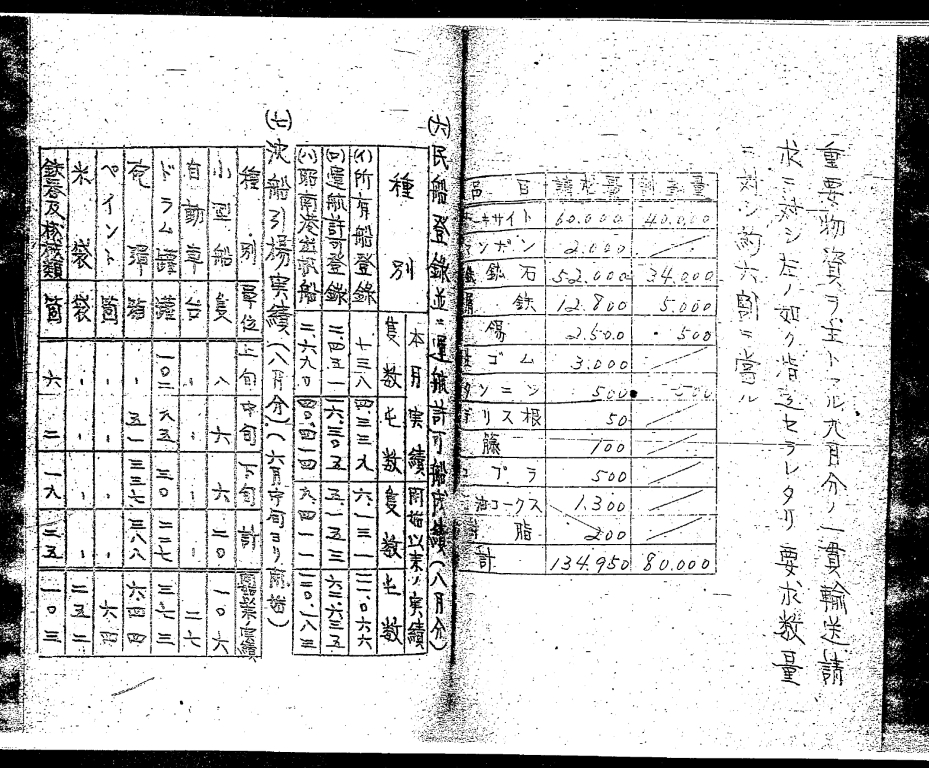 重要物資ヲ主トスル九月分ノ一貫輸送請
求ニ対シ左ノ如ク配造セラレタリ 要求数量
ニ対シ約六割ニ當ル
品 目 請求量 割当量
ボーキサイト 60.000 40.000
マンガン 2.000
鉄鉱石 52.000 34.000
屑鉄 12.800 5.000
錫 2.500 500
生ゴム 3.000
タンニン 500 500
デリス根 50
籐 100
コプラ 500
油コークス 1.300
脂 200
計 134.950 80.000
(六)民船登錄並ニ運航許可船成績(八月分)
種別 本月実績 開始以来ノ実績
隻数 屯数 隻数 屯数
(イ)所有船登錄 七三八 四.三三九 六.一三一 二二.〇六六
(ロ)運航許可登錄 二.四五一 一六.三〇五 五.一五三 六二.六三五
(ハ)昭南港出帆船 二.六九〇 四〇.四一四 九.四一一 一二〇.一八三
(七)沈船引揚ノ実績(八月分)(六月中旬ヨリ開始)
種別 單位 上旬 中旬 下旬 計 開始以来ノ実績
小型船 隻 八 六 六 二〇 一〇六
自動車 台 〃 〃 〃 〃 二七
ドラム罐 罐 一〇二 九五 三〇 二二七 三七三
砲弾 箱 〃 五一 三三七 三八八 六四四
ペイント 箇 〃 〃 〃 〃 六四
米袋 袋 〃 〃 〃 〃 二五二
鉄器及機械類 箇 六 二 一九 二五 一〇三